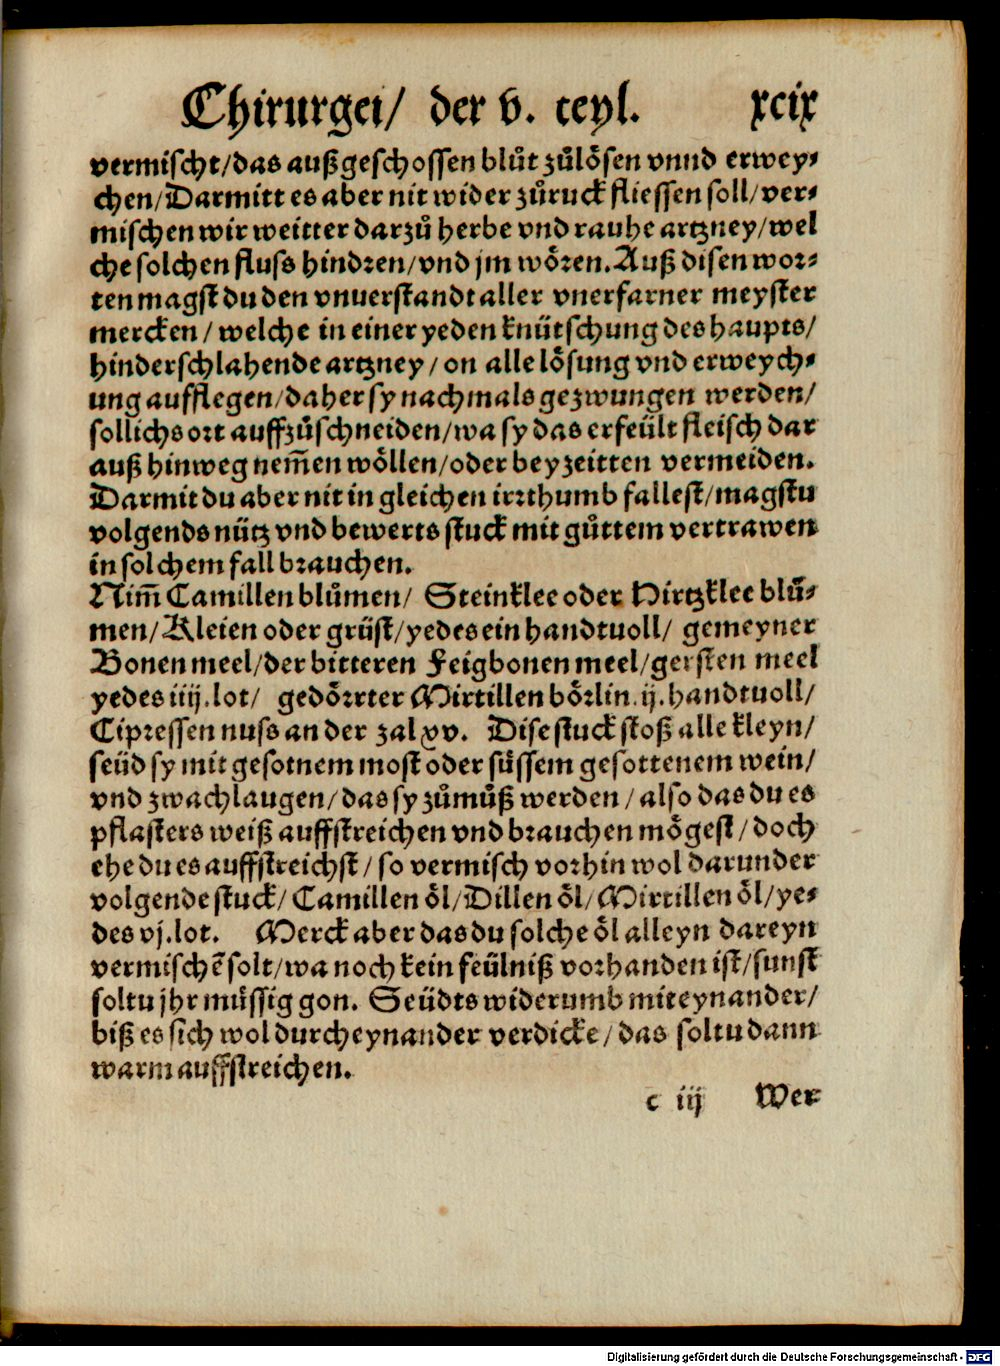 Chirurgei/ der v. teyl. xcix
vermischt/das außgeschossen blůt zůlösen vnnd erwey-
chen/Darmitt es aber nit wider zůruck fliessen soll/ver-
mischen wir weitter darzů herbe vnd rauhe artzney/wel
che solchen fluss hindren/vnd jm wören. Auß disen wor-
ten magst du den vnuerstandt aller vnerfarner meyster
mercken/ welche in einer yeden knütschung des haupts/
hinderschlahende artzney/ on alle lösung vnd erweych-
ung aufflegen/daher sy nachmals gezwungen werden/
sollichs ort auffzůschneiden/wa sy das erfeült fleisch dar
auß hinweg nem̃en wöllen/oder bey zeitten vermeiden.
Darmit du aber nit in gleichen irrthumb fallest/magstu
volgends nütz vnd bewerts stuck mit gůttem vertrawen
in solchem fall brauchen.
Nim̃ Camillen blůmen/ Steinklee oder Hirtzklee blů-
men/Kleien oder grüst/yedes ein handtuoll/ gemeyner
Bonen meel/der bitteren Feigbonen meel/gersten meel
yedes iiij.lot/ gedörrter Mirtillen börlin.ij.handtuoll/
Cipressen nuss an der zal xv. Dise stuck stoß alle kleyn/
seüd sy mit gesotnem most oder süssem gesottenem wein/
vnd zwachlaugen/das sy zůmůß werden/also das du es
pflasters weiß auffstreichen vnd brauchen mögest/doch
ehe du es auffstreichst/so vermisch vorhin wol darunder
volgende stuck/ Camillen öl/Dillen öl/Mirtillen öl/ye-
des vj.lot. Merck aber das du solche öl alleyn dareyn
vermischẽ solt/wa noch kein feülniß vorhanden ist/sunst
soltu jhr müssig gon. Seüdts widerumb mit eynander/
biß es sich wol durcheynander verdicke/das soltu dann
warm auffstreichen.
c iij Wer
Digitalisierung gefördert durch die Deutsche Forschungsgemeinschaft - DFG